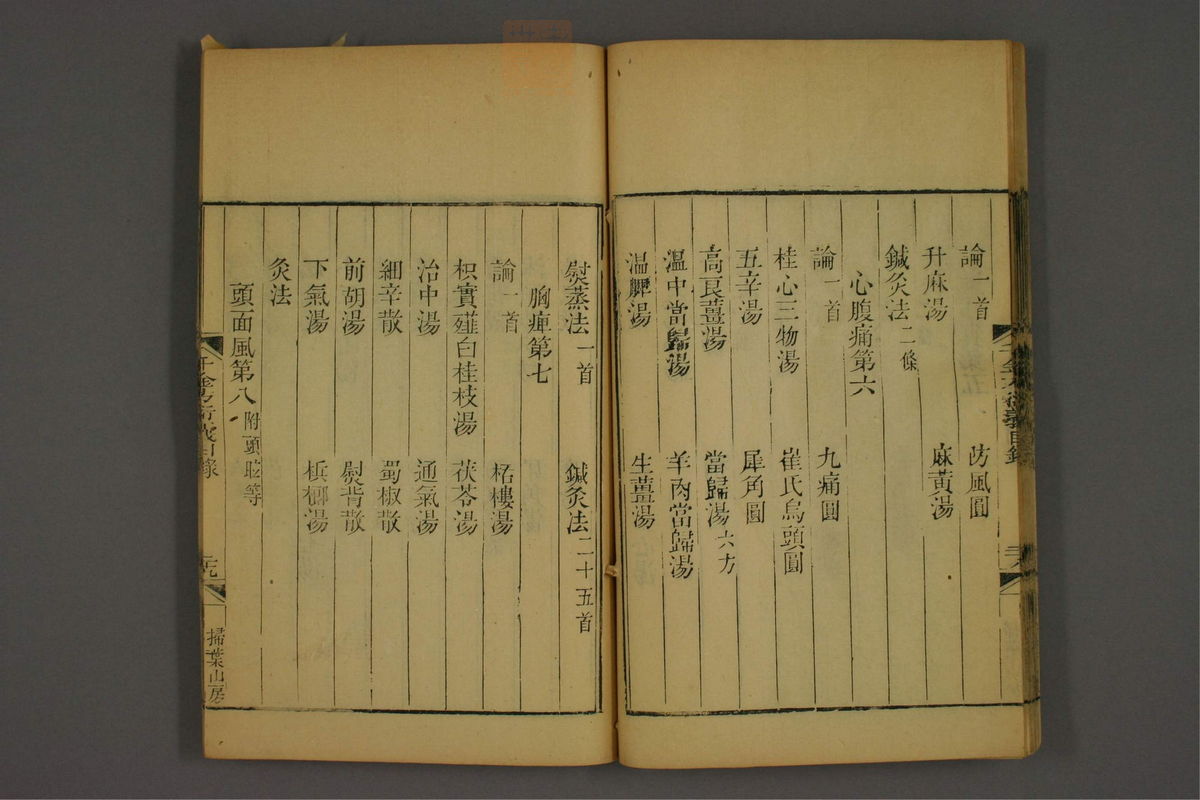 論一首 防風圓
升麻湯 麻黃湯
鍼灸法二條
心腹痛第六
論一首 九痛圓
桂心三物湯 崔氏烏頭圓
五辛湯 犀角圓
高良薑湯 當歸湯六方
溫中當歸湯 羊肉當歸湯
温脾湯 生薑湯
熨蒸法一首 鍼灸法二十五首
胸痺第七
論一首 栝樓湯
枳實薤白桂枝湯 茯苓湯
治中湯 通氣湯
細辛散 蜀椒散
前胡湯 熨背散
下氣湯 梹榔湯
灸法
頭面風第八附頭眩等
千金方衍義目錄
掃葉山房